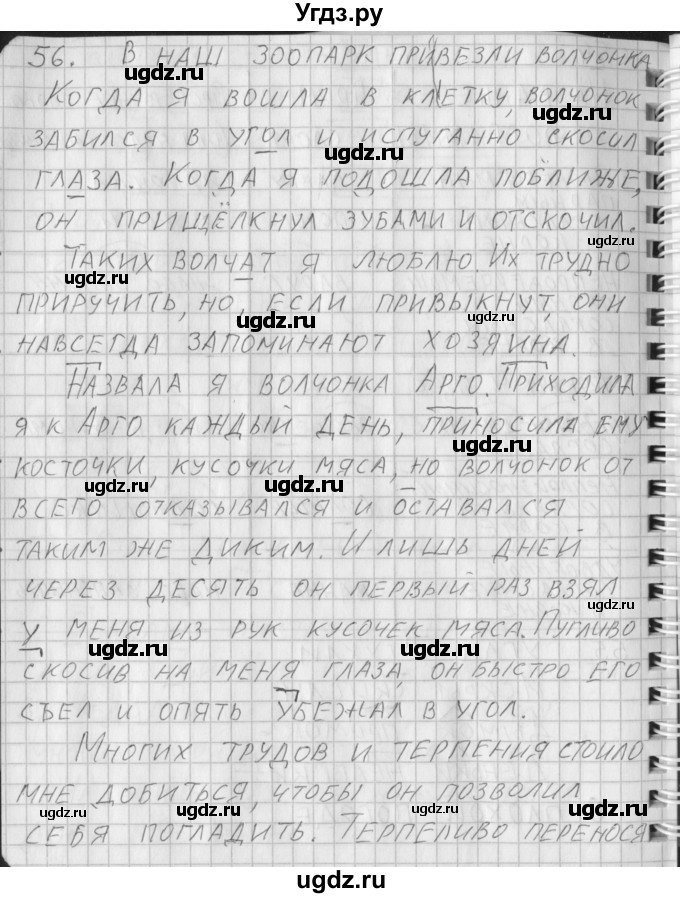 Угдз.ру
56. В НАШ ЗООПАРК ПРИВЕЗЛИ ВОЛЧОНКА
КОГДА Я ВОШЛА В КЛЕТКУ, ВОЛЧОНОК
ugdz.ru ugdz.ru
ЗАБИЛСЯ В УГОЛ И ИСПУГАННО СКОСИЛ
ugdz.ru
ГЛАЗА. КОГДА Я ПОДОШЛА ПОБЛИЖЕ,
ugdz.ru
ОН ПРИЩЁЛКНУЛ ЗУБАМИ И ОТСКОЧИЛ.
ugdz.ru
ТАКИХ ВОЛЧАТ Я ЛЮБЛЮ. ИХ ТРУДНО
ugdz.ru
ПРИРУЧИТЬ, НО, ЕСЛИ ПРИВЫКНУТ, ОНИ
ugdz.ru ugdz.ru
НАВСЕГДА ЗАПОМИНАЮТ ХОЗЯИНА.
НАЗВАЛА Я ВОЛЧОНКА АРГО. ПРИХОДИЛА
ugdz.ru
Я К АРГО КАЖДЫЙ ДЕНЬ, ПРИНОСИЛА ЕМУ
ugdz.ru
КОСТОЧКИ, КУСОЧКИ МЯСА, НО ВОЛЧОНОК ОТ
ugdz.ru ugdz.ru
ВСЕГО ОТКАЗЫВАЛСЯ И ОСТАВАЛСЯ
ugdz.ru
ТАКИМ ЖЕ ДИКИМ. И ЛИШЬ ДНЕЙ
ЧЕРЕЗ ДЕСЯТЬ ОН ПЕРВЫЙ РАЗ ВЗЯЛ
ugdz.ru
У МЕНЯ ИЗ РУК КУСОЧЕК МЯСА. ПУГЛИВО
ugdz.ru ugdz.ru
СКОСИВ НА МЕНЯ ГЛАЗА, ОН БЫСТРО ЕГО
СЪЕЛ И ОПЯТЬ УБЕЖАЛ В УГОЛ.
ugdz.ru
МНОГИХ ТРУДОВ И ТЕРПЕНИЯ СТОИЛО
МНЕ ДОБИТЬСЯ, ЧТОБЫ ОН ПОЗВОЛИЛ
ugdz.ru ugdz.ru ugdz.ru
СЕБЯ ПОГЛАДИТЬ. ТЕРПЕЛИВО ПЕРЕНОСЯ
ugdz.ru